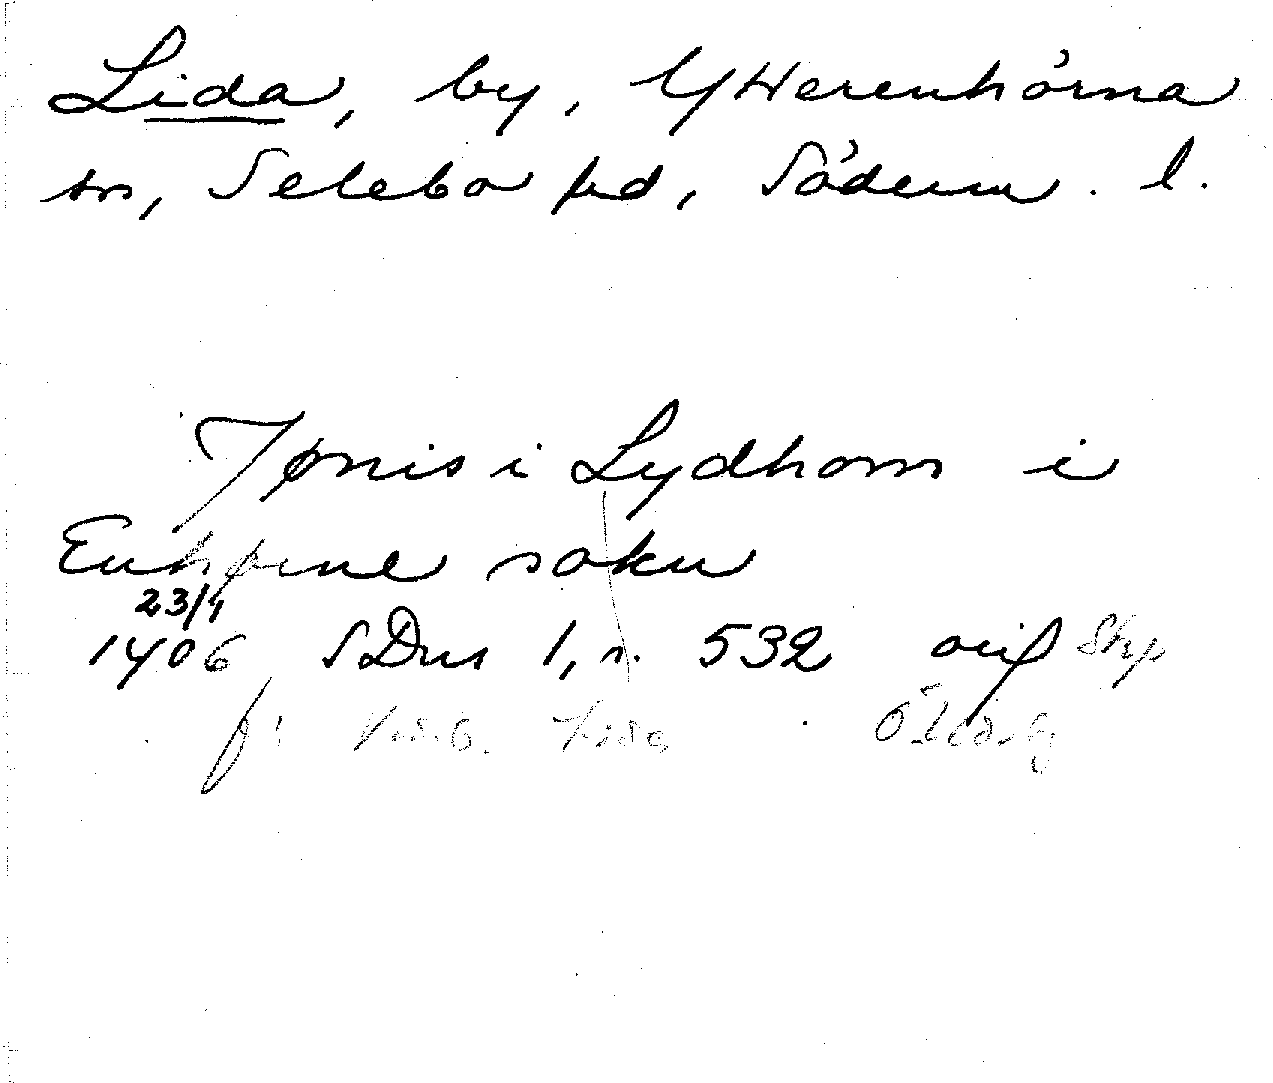 Lida, by, Ytterenhörna
sn, Selebo hd, Söderm. l.
Jønis i Lydhom i
Enhørne sokn
23/4
1406 SDns 1, s. 532 orig Shp
Lida